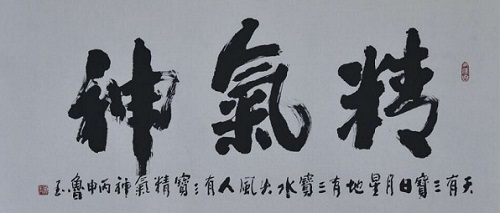 精氣神
天有三寶日月星地有三寶水火風人有三寶精氣神丙申魯